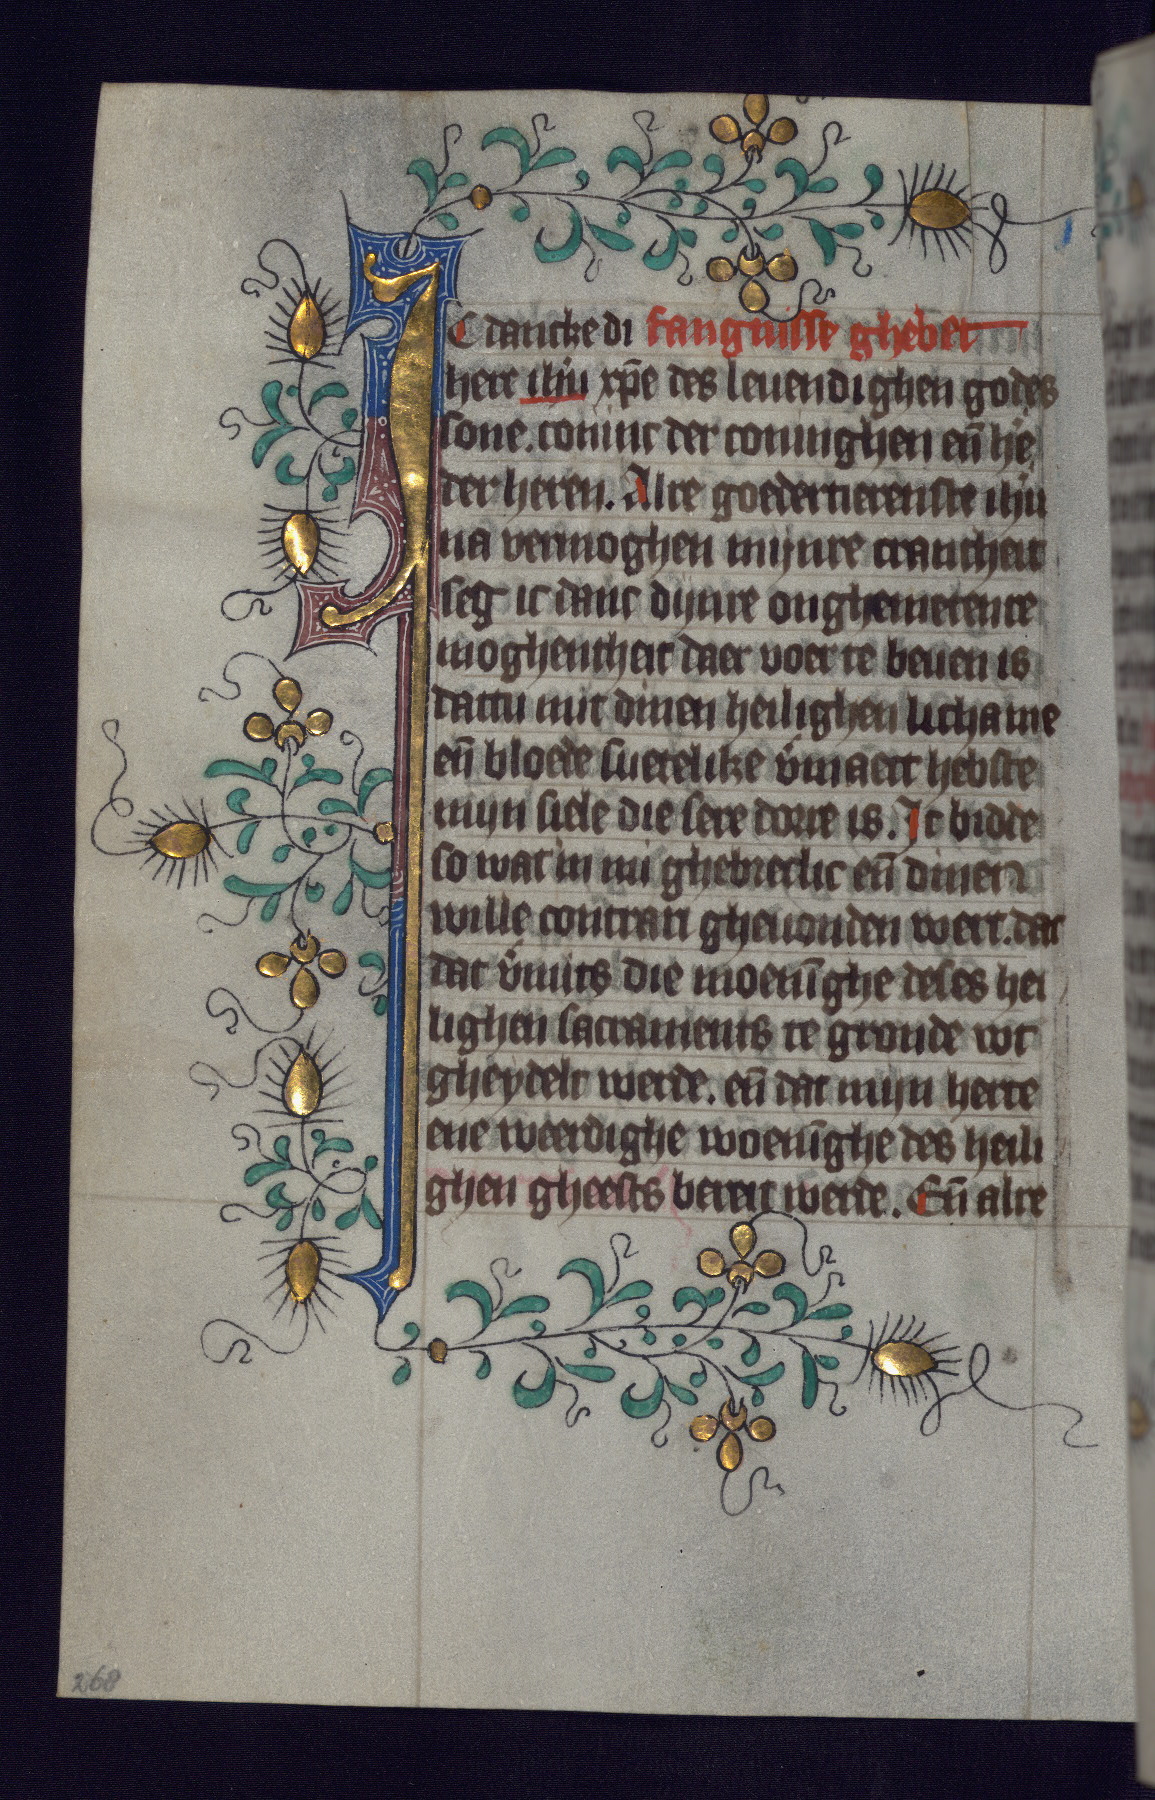 IC dancke di fangnisse ghebet
here ihu xpe des leuendighen godes
sone. coninc der coninghen en̄ he
der heren. Alre goedertierenste ihu
na vermoghen mijnre crancheit
seg ic danc dijnre onghemetenre
moghentheit daer voer te beuen is
dattu mit dinen heilighen lichame
en̄ bloede suetelike v̄maect hebste
mijn siele die sere dorre is. Ic bidde
so wat in mi ghebreclic en̄ dinen
wille contrari gheuonden wert. dat
dat v̄mits die inoemīghe deses hei
lighen sacraments te gronde wt
gheydelt werde. en̄ dat mijn herte
ene weerdighe woenīghe des heili
ghen gheests bereit werde. En̄ alre
268